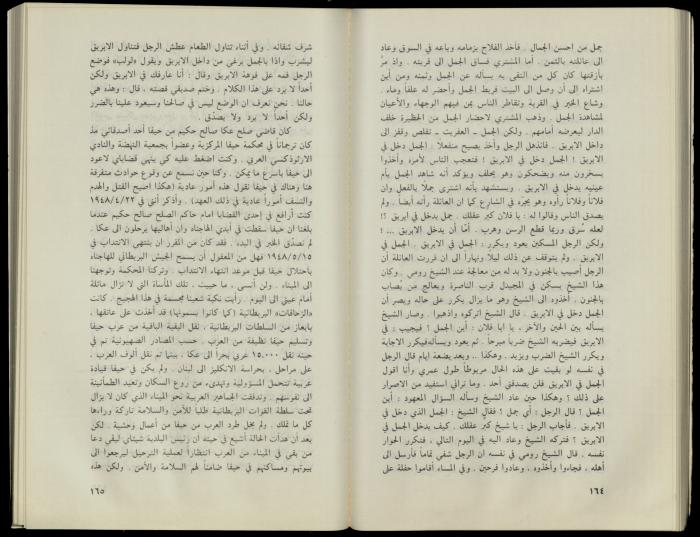 جمل من احسن الجمال . فأخذ الفلاح بزمامه وباعه في السوق وعاد
الى عائلته بالثمن . أما المشتري فساق الجمل الى قريته . واذ مرّ
بأزقتها كان كل من التقى به يسأله عن الجمل وثمنه ومن أين
اشتراه الى أن وصل الى البيت فربط الجمل وأحضر له علفاً وماء .
وشاع الخبر في القرية وتقاطر الناس بمن فيهم الوجهاء والأعيان
لمشاهدة الجمل . وذهب المشتري لاحضار الجمل من الحظيرة خلف
الدار ليعرضه أمامهم . ولكن الجمل ـ العفريت ـ تقلص وقفز الى
داخل الابريق . فانذهل الرجل وأخذ يصيح منفعلا : الجمل دخل في
الابريق ! الجمل دخل في الابريق ! فتعجب الناس لأمره وأخذوا
يسخرون منه ويضحكون وهو يحلف ويؤكد أنه شاهد الجمل بأم
عينيه يدخل في الابريق . ويستشهد بأنه اشترى جملاً بالفعل وان
فلاناً وفلاناً رأوه وهو يجرّه في الشارع كما ان العائلة رأته أيضاً . ولم
يصدق الناس وقالوا له : يا فلان كبر عقلك . جمل يدخل في ابريق ؟!
لعله سُرق وربما قطع الرسن وهرب . أمّا أن يدخل الابريق ... !
ولكن الرجل المسكين يعود ويكرر : الجمل في الابريق . الجمل في
الابريق . ولم يتوقف عن ذلك ليلاً ونهاراً الى ان قررت العائلة أن
الرجل أصيب بالجنون ولا بد له من معالجة عند الشيخ رومي . وكان
هذا الشيخ يسكن في المجيدل قرب الناصرة ويعالج من يُصاب
بالجنون . أخذوه الى الشيخ وهو ما يزال يكرر على حاله ويصر أن
الجمل دخل في الابريق . قال الشيخ اتركوه واذهبوا . وصار الشيخ
يسأله بين الحين والآخر ، يا ابا فلان : أين الجمل ؟ فيجيب : في
الابريق فيضربه الشيخ ضرباً مبرحاً . ثم يعود ويسأله فيكرر الاجابة
ويكرر الشيخ الضرب ويزيد . وهكذا .. وبعد بضعة ايام قال الرجل
في نفسه لو بقيت على هذه الحال مربوطاً طول عمري وأنا اقول
الجمل في الابريق فلن يصدقني أحد . وما تراني استفيد من الاصرار
على ذلك ؟ وهكذا حين عاد الشيخ وسأله السؤال المعهود : أين
الجمل ؟ قال الرجل : أي جمل ؟ فقال الشيخ : الجمل الذي دخل في
الابريق . فأجاب الرجل : يا شيخ كبر عقلك . كيف يدخل الجمل في
الابريق ؟ فتركه الشيخ وعاد اليه في اليوم التالي ، فتكرر الحوار
نفسه . قال الشيخ رومي في نفسه ان الرجل شفي تماماً فأرسل الى
أهله ، فجاءوا وأخذوه ، وعادوا فرحين . وفي المساء أقاموا حفلة على
١٦٤
شرف شفائه . وفي أثناء تناول الطعام عطش الرجل فتناول الابريق
ليشرب واذا بالجمل يرغي من داخل الابريق ويقول «لولب» فوضع
الرجل فمه على فوهة الابريق وقال : أنا عارفك في الابريق ولكن
أحداً لا يرد على هذا الكلام . وختم صديقي قصته ، قال : وهذه هي
حالنا . نحن نعرف ان الوضع ليس في صالحنا وسيعود علينا بالضرر
ولكن أحداً لا يرد ولا يصدّق .
كان قاضي صلح عكا صالح حكيم من حيفا أحد أصدقائي مذ
كان ترجماناً في محكمة حيفا المركزية وعضواً بجمعية النهضة والنادي
الارثوذكسي العربي . وكنت اضغط عليه كي ينهي قضاياي لاعود
الى حيفا باسرع ما يمكن . وكنا حين نسمع عن وقوع حوادث متفرقة
هنا وهناك في حيفا نقول هذه أمور عادية (هكذا اصبح القتل والهدم
والنسف أموراً عادية في ذلك العهد) . وأذكر أنني في ١٩٤٨/٤/٢٢
كنت أرافع في إحدى القضايا امام حاكم الصلح صالح حكيم عندما
بلغنا ان حيفا سقطت في أيدي الهاجناه وان أهاليها يرحلون الى عكا .
لم نصدّق الخبر في البدء . فقد كان من المقرر ان ينتهي الانتداب في
١٩٤٨/٥/١٥ فهل من المعقول أن يسمح الجيش البريطاني للهاجناه
باحتلال حيفا قبل موعد انتهاء الانتداب . وتركنا المحكمة وتوجهنا
الى الميناء . ولن أنسى ، ما حييت ، تلك المأساة التي لا تزال ماثلة
أمام عيني الى اليوم . رأيت نكبة شعبنا مجسمة في هذا الهجيج . كانت
«الزحافات» البريطانية (كما كانوا يسمونها) قد أخذت على عاتقها ،
بايعاز من السلطات البريطانية ، نقل البقية الباقية من عرب حيفا
وتسليم حيفا نظيفة من العرب . حسب المصادر الصهيونية تم في
حينه نقل ١٥.٠٠٠ عربي بحراً الى عكا . بينما تم نقل ألوف العرب ،
على مراحل ، بحراسة الانكليز الى لبنان . ولم يكن في حيفا قيادة
عربية تتحمل المسؤولية وتهدىء من روع السكان وتعيد الطمأنينة
الى نفوسهم . وتدفقت الجماهير العربية نحو الميناء الذي كان لا يزال
تحت سلطة القوات البريطانية طلبا للأمن والسلامة تاركة وراءها
كل ما تملك . ولم يخل طرد العرب من حيفا من أعمال وحشية . لكن
بعد أن هدأت الحالة أشيع في حينه أن رئيس البلدية شبتاي ليفي دعا
من بقي في الميناء من العرب انتظاراً لعملية الترحيل ليرجعوا الى
بيوتهم ومساكنهم في حيفا ضامناً لهم السلامة والأمن . ولكن هذه
١٦٥